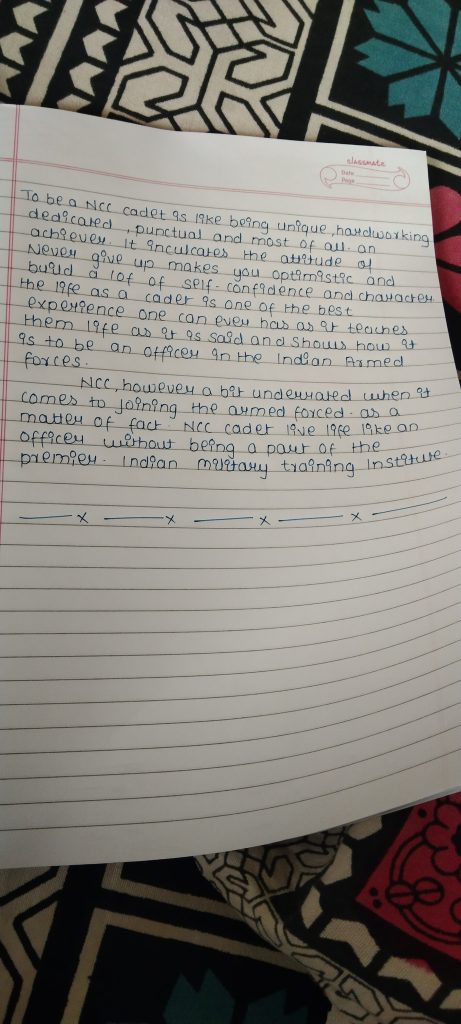 classmate
Date
Page
To be a NCC cadet is like being unique, hardworking
dedicated, punctual and most of all. an
achiever. It inculcates the attitude of
Never give up makes you optimistic and
build a lot of self-confidence and character
the life as a cadet is one of the best
experience one can ever has as it teaches
them life as it is said and shows how it
is to be an officer in the Indian Armed
forces.
NCC, however a bit underrated when it
comes to joining the armed forced. as a
matter of fact. NCC cadet live life like an
officer without being a part of the
premier. Indian military training Institute.